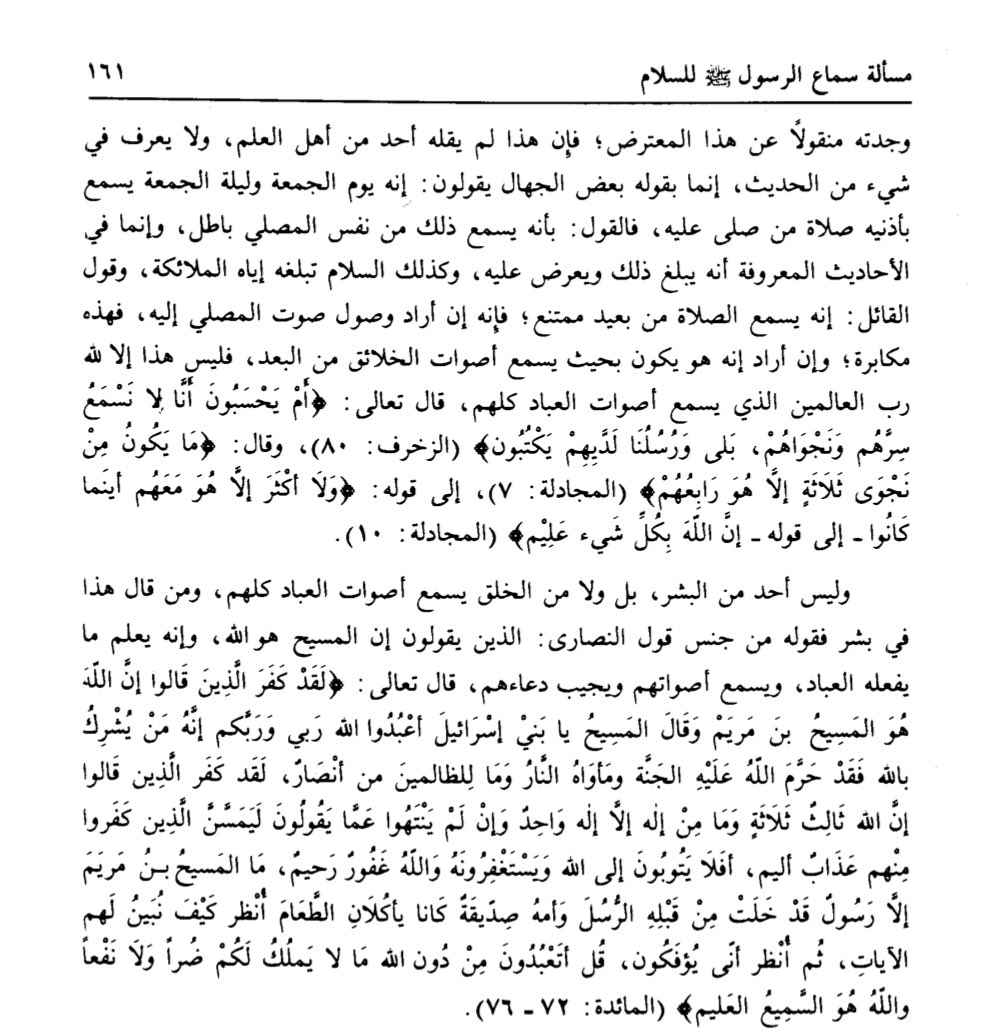 مسألة سماع الرسول ﷺ للسلام ١٦١
وجدته منقولاً عن هذا المعترض؛ فإن هذا لم يقله أحد من أهل العلم، ولا يعرف في
شيء من الحديث، إنما بقوله بعض الجهال يقولون: إنه يوم الجمعة وليلة الجمعة يسمع
بأذنيه صلاة من صلى عليه، فالقول: بأنه يسمع ذلك من نفس المصلي باطل، وإنما في
الأحاديث المعروفة أنه يبلغ ذلك ويعرض عليه، وكذلك السلام تبلغه إياه الملائكة، وقول
القائل: إنه يسمع الصلاة من بعيد ممتنع؛ فإنه إن أراد وصول صوت المصلي إليه، فهذه
مكابرة؛ وإن أراد إنه هو يكون بحيث يسمع أصوات الخلائق من البعد، فليس هذا إلا لله
رب العالمين الذي يسمع أصوات العباد كلهم، قال تعالى: ﴿أَمْ يَحْسَبُونَ أَنَّا لا نَسْمَعُ
سِرَّهُم وَنَجْوَاهُمْ، بَلى وَرُسُلُنَا لَدَّيهِمْ يَكْتُبُون﴾ (الزخرف: ٨٠)، وقال: ﴿مَا يَكُونُ مِنْ
نَجْوَى ثَلَاثَةٍ إلَّا هُوَ رَابِعُهُمْ﴾ (المجادلة: ٧)، إلى قوله: ﴿وَلَا أكْثَرَ إلَّا هُوَ مَعَهُم أينَما
كَانُوا ـ إلى قوله ـ إنَّ اللّهَ بِكُلِّ شَيء عَلِيْم﴾ (المجادلة: ١٠).
وليس أحد من البشر، بل ولا من الخلق يسمع أصوات العباد كلهم، ومن قال هذا
في بشر فقوله من جنس قول النصارى: الذين يقولون إن المسيح هو الله، وإنه يعلم ما
يفعله العباد، ويسمع أصواتهم ويجيب دعاءهم، قال تعالى: ﴿لَقَدْ كَفَرَ الَّذِينَ قَالوا إنَّ اللّهَ
هُوَ المَسِيحُ بنَ مَريَمْ وَقَالَ المَسيحُ يا بَنيْ إسْرائيلَ أعْبُدُوا الله رَبي وَرَبَّكم إنَّهُ مَنْ يُشْرِكُ
بالله فَقَدْ حَرَّمَ اللّهُ عَلَيْهِ الجَنَّة ومَأوَاهُ النَّارُ وَمَا لِلظالمينَ من أنْصَارٌ، لَقَد كَفَر الَّذِين قَالوا
إنَّ الله ثَالِثٌ ثَلَاثَةٍ وَمَا مِنْ إلٰه إلَّا إلٰه وَاحِدٌ وَإنْ لَمْ يَنْتَهُوا عَمَّا يَقُولُونَ لَيَمَسَّنَّ الَّذِين كَفَروا
مِنْهم عَذَابٌ أليم، أفَلَا يَتُوبُونَ إلى الله وَيَسْتَغْفِرُونَهُ وَاللّهُ غَفُورٌ رَحيمٌ، مَا المَسيحُ بـنُ مَريَمَ
إلَّا رَسُولٌ قَدْ خَلَتْ مِنْ قَبْلِهِ الرُّسُلَ وَأمهُ صِدّيقَةٌ كَانا يأكُلَانِ الطَّعَامَ أُنْظر كَيْفَ نُبَينُ لَهم
الآياتِ، ثُم أُنْظر أنّى يُؤفَكُون، قُل أتَعْبُدُونَ مِنْ دُون الله مَا لا يَملُكُ لَكُمْ ضُراً وَلَا نَفْعاً
واللّهُ هُوَ السَّمِيعُ العَليم﴾ (المائدة: ٧٢ ـ ٧٦).